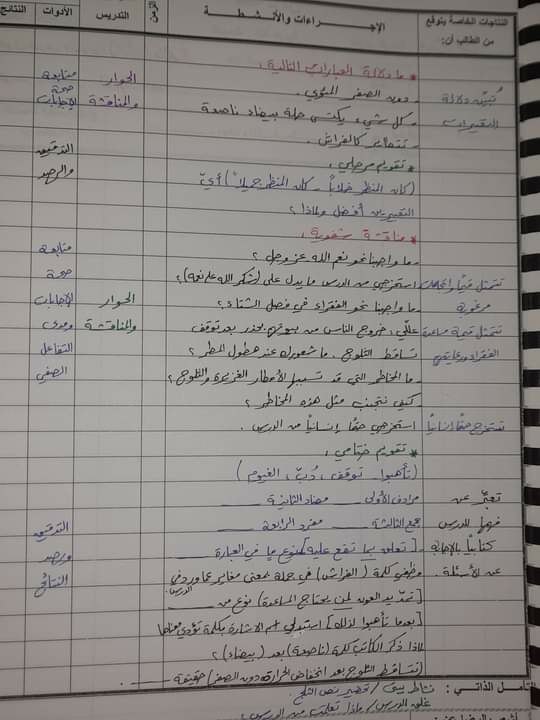 النتاجات الخاصة يتوقع من الطالب أن: الإجراءات والأنشطة الزمن التدريس الأدوات النتائج
* ما دلالة العبارات التالية:
تُبيّن دلالة - دون الصفر المئوي. الحوار متابعة
التعبيرات - كل شيء يكتسي حلة بيضاء ناصعة والمناقشة صحة
- تتطاير كالفراش. الإجابات
* تقويم مرحلي: التدقيق
(كان المنظر خلاباً - كان المنظر جميلاً) أيّ والرصد
التعبيرين أفضل ولماذا؟
* مناقشة شفوية:
- ما واجبنا نحو نعم الله عز وجل؟ متابعة
تتمثل قيماً واتجاهات استخرجي من الدرس ما يدل على (شكر الله على نعمه)؟ صحة
مرغوبة - ما واجبنا نحو الفقراء في فصل الشتاء؟ الحوار الإجابات
تتمثل قيمة مساعدة عللي: خروج الناس من بيوتهم بحذر بعد توقف والمناقشة ومدى
الفقراء ورعايتهم تساقط الثلوج. ما شعورك عند هطول المطر؟ التفاعل
- ما المخاطر التي قد تسببها الأمطار الغزيرة والثلوج؟ الصفي
- كيف نتجنب مثل هذه المخاطر؟
تستخرج حقاً إنسانياً استخرجي حقاً إنسانياً من الدرس.
* تقويم ختامي:
(تأهبوا، توقف، دُبّ، الغيوم)
تعبّر عن مرادف الأولى ____ مضاد الثانية ____
فهمها للدرس جمع الثالثة ____ مفرد الرابعة ____ التدقيق
كتابياً بالإجابة - [تعلق بما تقع عليه] نوع ما في العبارة ____ ورصد
عن الأسئلة. وظفي كلمة (الفراش) في جملة بمعنى مغاير عما ورد في الدرس. النتائج
[تمديد العون لمن يحتاج المساعدة] نوع من ____
[بعدما تأهبوا لذلك] استبدلي اسم الإشارة بكلمة تؤدي معناها
لماذا ذكر الكاتب كلمة (ناصعة) بعد (بيضاء)؟
(تتساقط الثلوج بعد انخفاض الحرارة دون الصفر) حقيقة ____.
التأمل الذاتي: نشاط بيتي / تحضير نص الثلج
الدرس / ماذا تعلمت من الدرس: